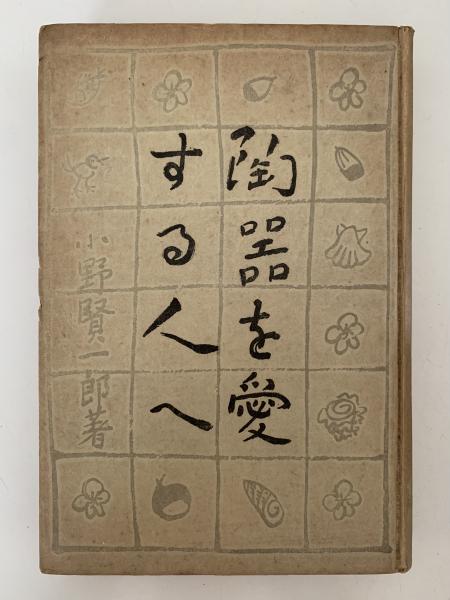 陶器を愛
する人へ
小野賢一郎著